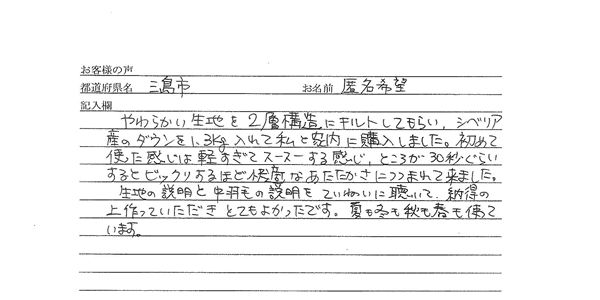 お客様の声
都道府県名 三島市 お名前 匿名希望
記入欄
やわらかい生地を2層構造にキルトしてもらい、シベリア
産のダウンを1.3kg入れて私と家内に購入しました。初めて
使った感じは軽すぎてスースーする感じ、ところが30秒ぐらい
するとビックリするほど快適なあたたかさにつつまれて来ました。
生地の説明と中羽毛の説明をていねいに聴いて、納得の
上作っていただきとてもよかったです。夏も冬も秋も春も使って
います。